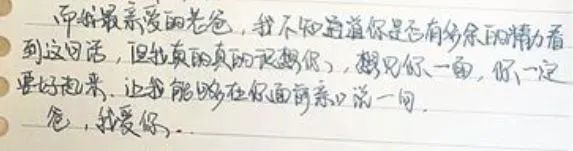 而我最亲爱的老爸，我不知道你是否有多余的精力看
到这句话，但我真的真的很想你，想见你一面，你一定
要好起来，让我能够在你面前亲口说一句
爸，我爱你..